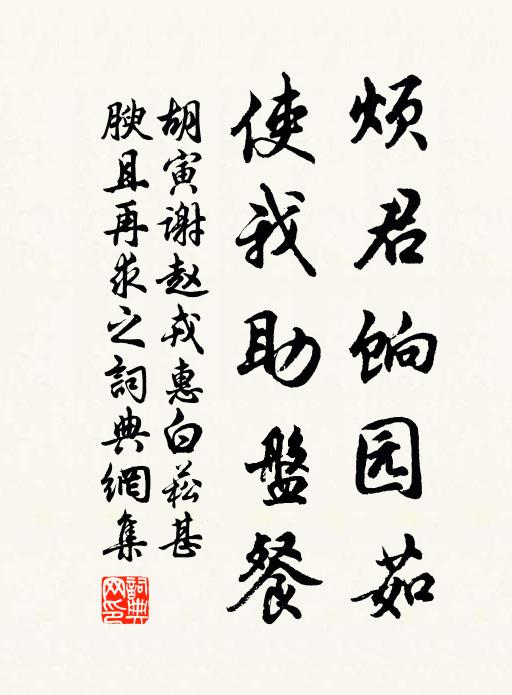 烦君饷园茹
使我助盤餐
胡寅谢赵戎惠白菘甚
腴且再求之詞典網集
詞典网印